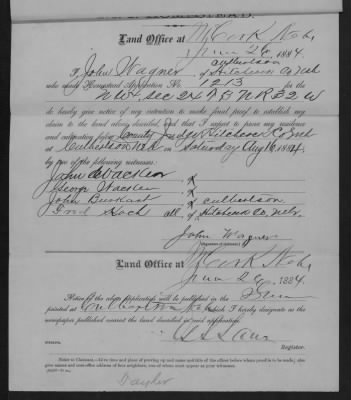 Land Office at McCook Neb.
June 26, 1884.
I, John Wagner, of Hitchcock Co Neb
Culbertson
who made Homestead Application No. 1213 for the
N W ¼ Sec 24 T 3 N R 32 W
do hereby give notice of my intention to make final proof to establish my
claim to the land above described, and that I expect to prove my residence
and cultivation before County Judge Hitchcock Co Neb
at Culbertson Neb on Saturday Aug 16, 1884,
by two of the following witnesses:
John
George
John Burkart Culbertson
Fred Koch all of Hitchcock Co, Neb.
John Wagner
(Signature of claimant.)
Land Office at McCook Neb.
June 26, 1884.
Notice of the above application will be published in the Sun
printed at Culbertson Neb which I hereby designate as the
newspaper published nearest the land described in said application.
Register.
Notice to Claimant.—Give time and place of proving up and name and title of the officer before whom proof is to be made; also
give names and post-office address of four neighbors, two of whom must appear as your witnesses.